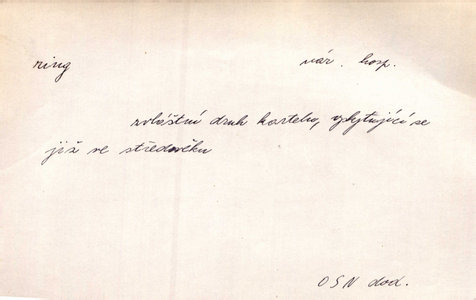 ring nár. hosp.
zvláštní druh kartelu, vyskytující se
již ve středověku
OSN dod.